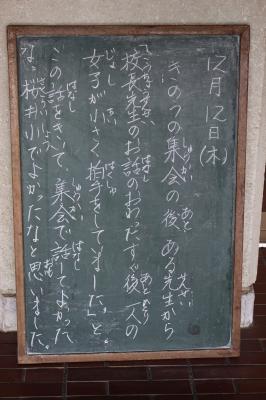 12月12日(木)
きのうの集会の後、ある先生から
校長先生のお話のおわったすぐ後、一人の
女子が小さく拍手をしていました。」と。
この話をきいて、集会で話してよかった
な、桜井小でよかったなと思いました。